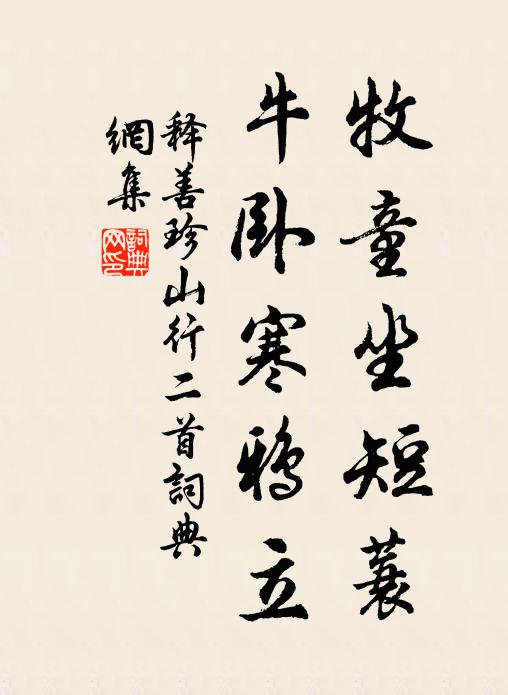 牧童坐短蓑
牛卧寒鸦立
释善珍山行二首詞典
網集
詞典
网印